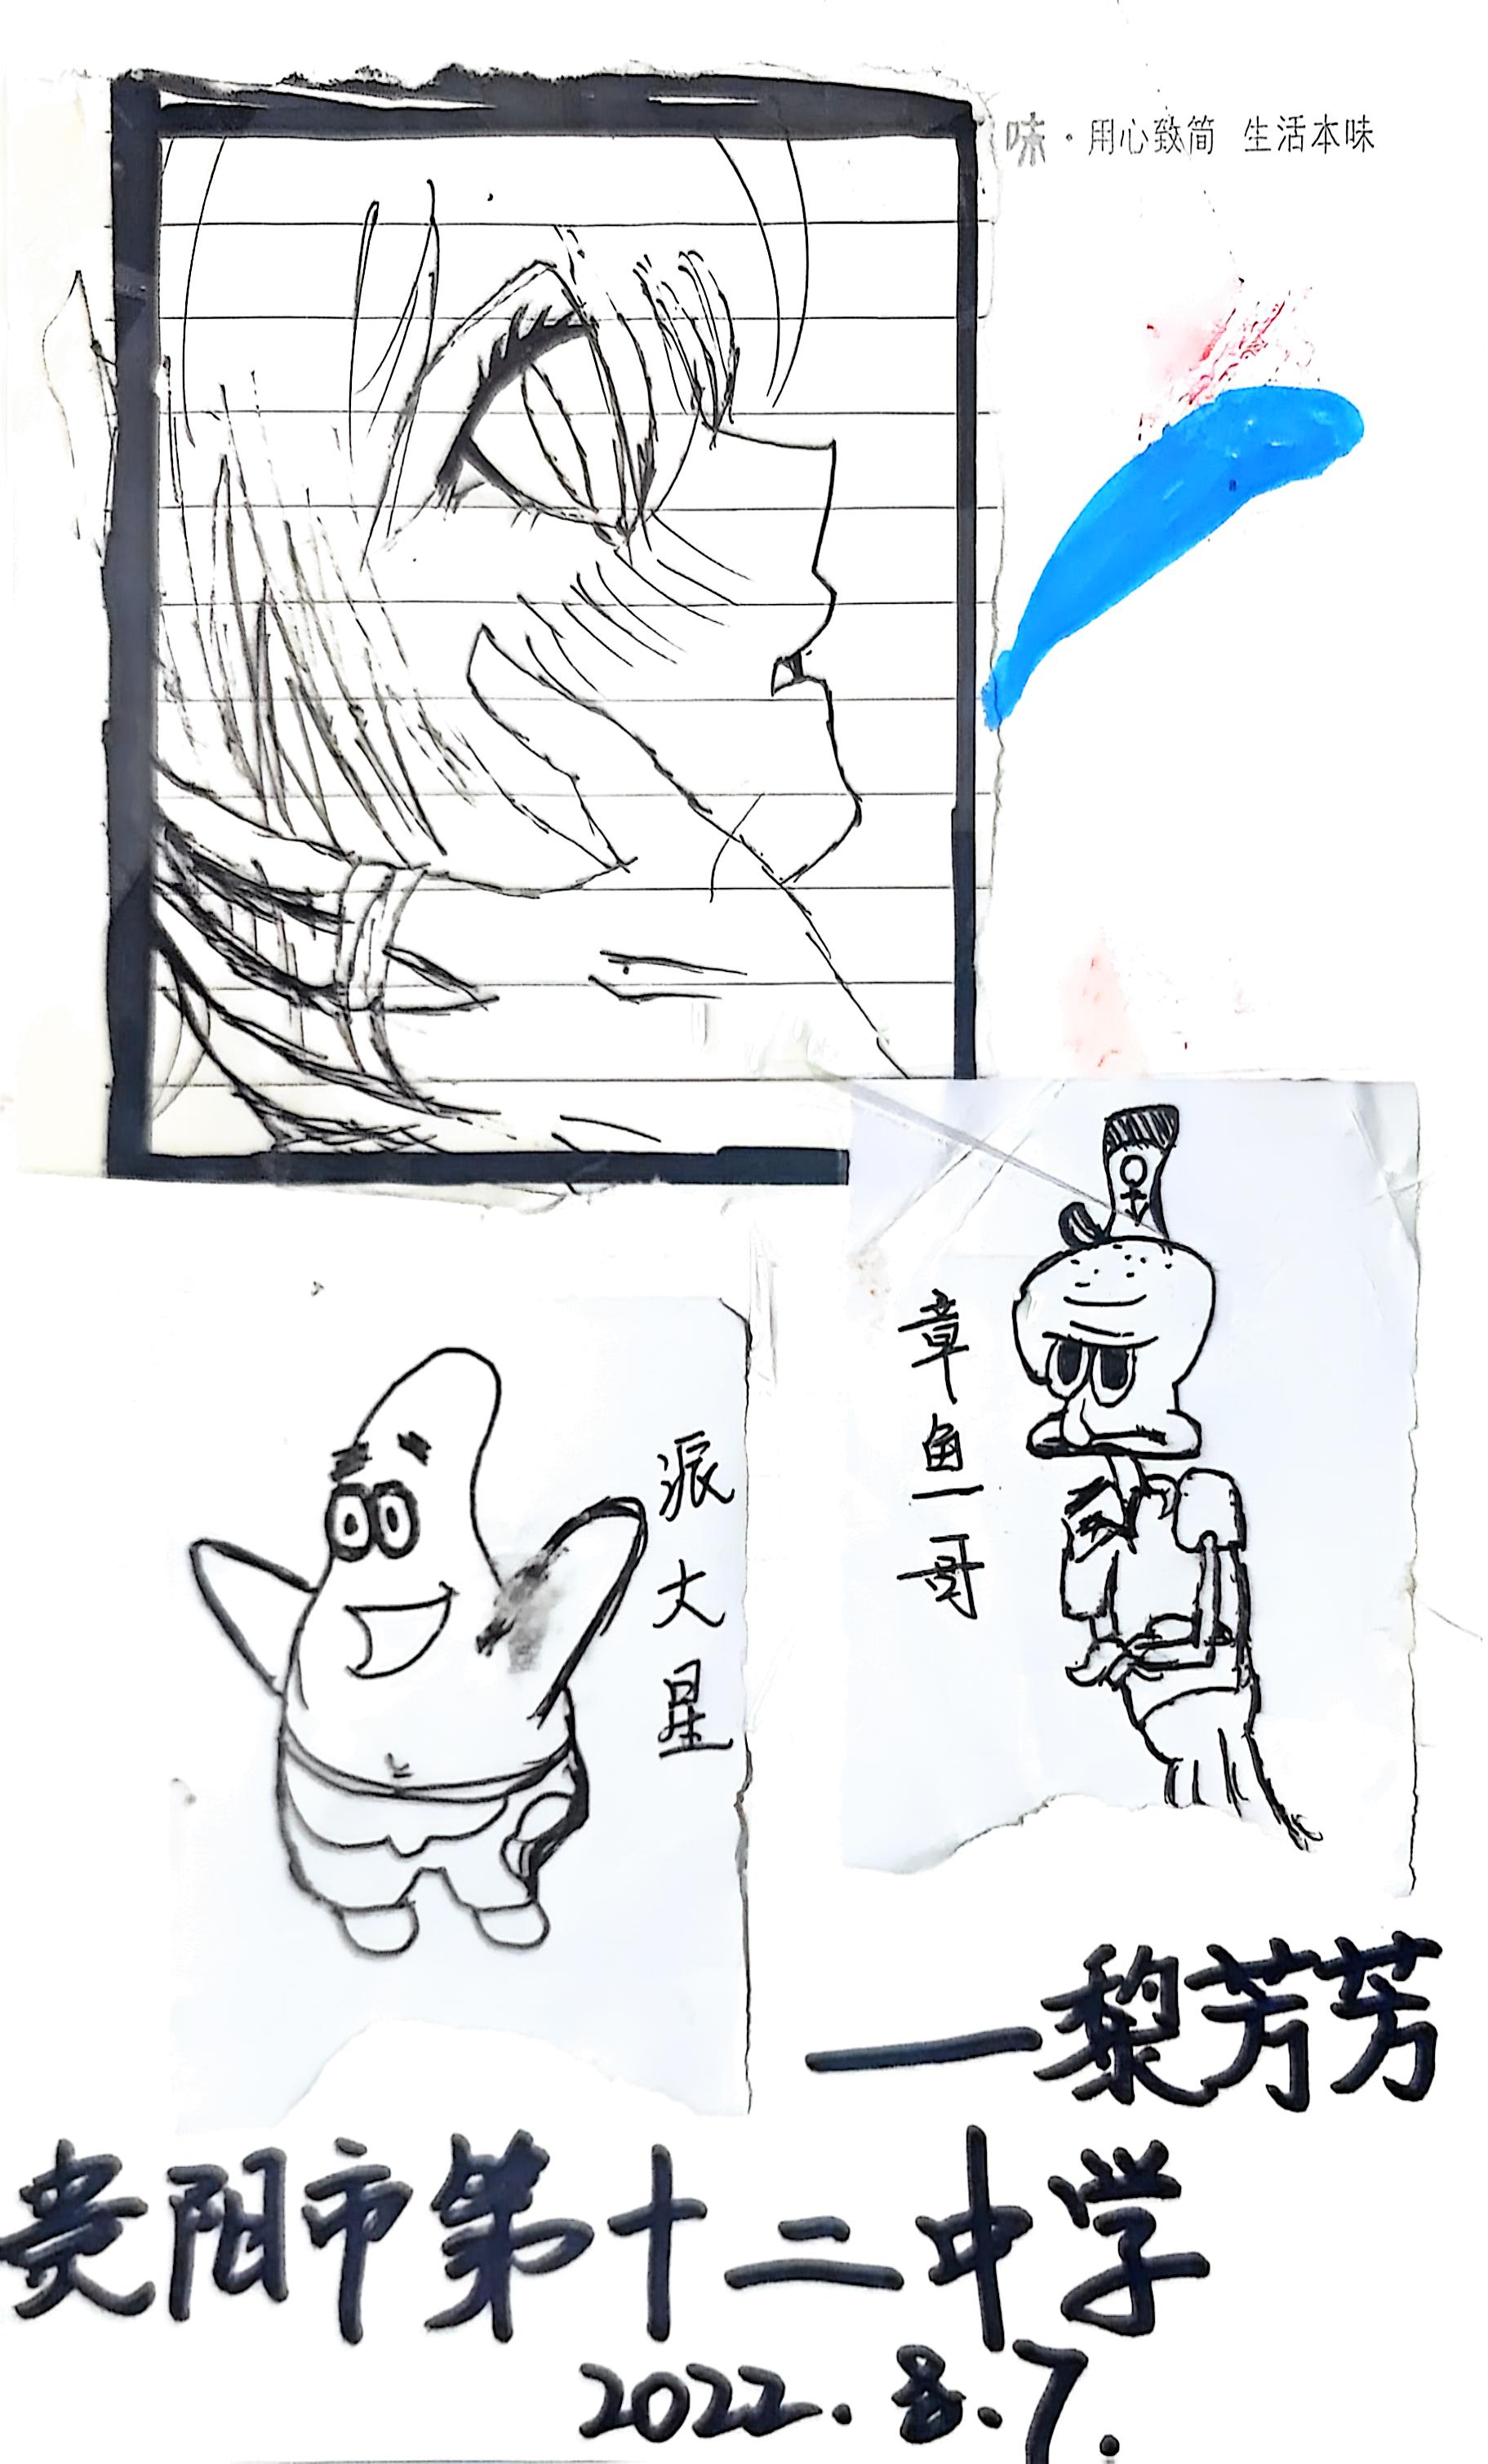 味·用心致简 生活本味
章鱼一哥
派大星
—黎芳芳
贵阳市第十二中学
2022.8.7.